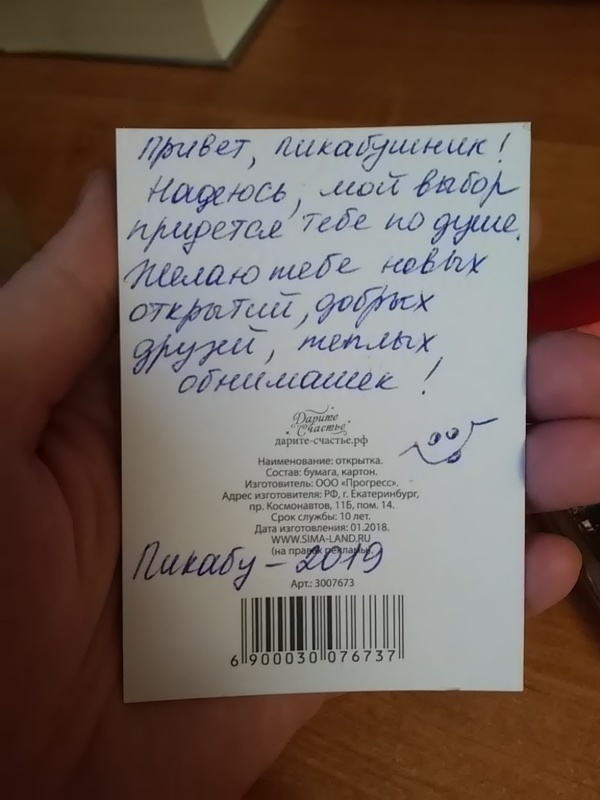 Привет, пикабушник!
Надеюсь, мой выбор
придется тебе по душе.
Желаю тебе новых
открытий, добрых
друзей, теплых
обнимашек!
Дарите
Счастье
дарите-счастье.рф
Наименование: открытка.
Состав: бумага, картон.
Изготовитель: ООО «Прогресс».
Адрес изготовителя: РФ, г. Екатеринбург,
пр. Космонавтов, 11Б, пом. 14.
Срок службы: 10 лет.
Дата изготовления: 01.2018.
WWW.SIMA-LAND.RU
(на правах рекламы)
Пикабу - 2019
Арт.: 3007673
6 900030 076737